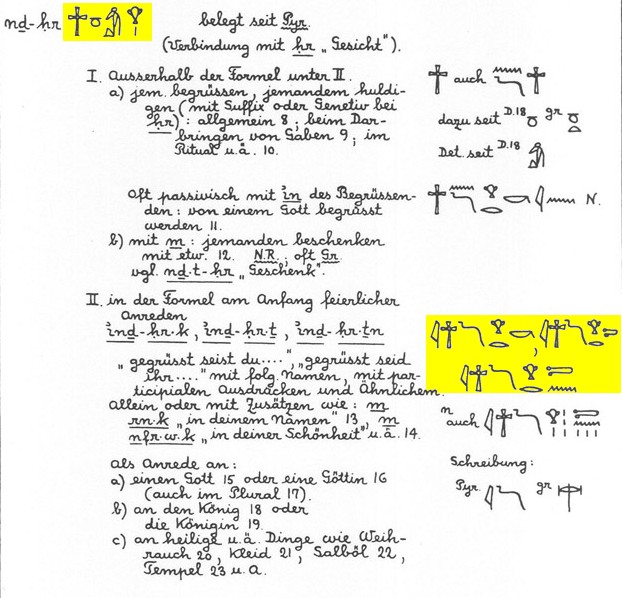 nḏ-ḥr
belegt seit Pyr.
(Verbindung mit ḥr „Gesicht").
I. Ausserhalb der Formel unter II.
a) jem. begrüssen, jemandem huldi-
gen (mit Suffix oder Genetiv bei
ḥr): allgemein 8; beim Dar-
bringen von Gaben 9; im
Ritual u.ä. 10.
auch
dazu seit D.18 gr
Det. seit D.18
Oft passivisch mit in des Begrüssen-
den: von einem Gott begrüsst
werden 11.
N.
b) mit m: jemanden beschenken
mit etw. 12. N.R.; oft Gr.
vgl. nḏ.t-ḥr „Geschenk".
II. in der Formel am Anfang feierlicher
Anreden
inḏ-ḥr.k, inḏ-ḥr.ṯ, inḏ-ḥr.ṯn
„gegrüsst seist du....", „gegrüsst seid
ihr...." mit folg. Namen, mit par-
ticipialen Ausdrücken und Ähnlichem.
Allein oder mit Zusätzen wie: m
rn.k „in deinem Namen" 13, m
nfr.w.k „in deiner Schönheit" u.ä. 14.
n auch
als Anrede an:
a) einen Gott 15 oder eine Göttin 16
(auch im Plural 17).
b) an den König 18 oder
die Königin 19.
c) an heilige u.ä. Dinge wie Weih-
rauch 20, Kleid 21, Salböl 22,
Tempel 23 u.a.
Schreibung:
Pyr. gr